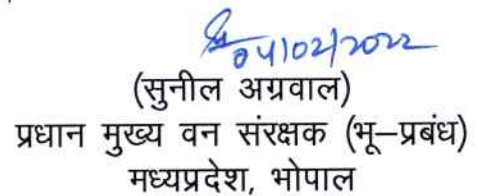 04/02/2022
(सुनील अग्रवाल)
प्रधान मुख्य वन संरक्षक (भू–प्रबंध)
मध्यप्रदेश, भोपाल